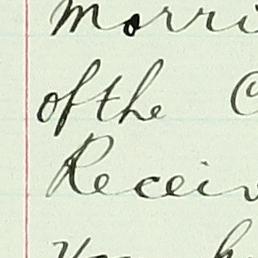 Morri
of the C
Receiv